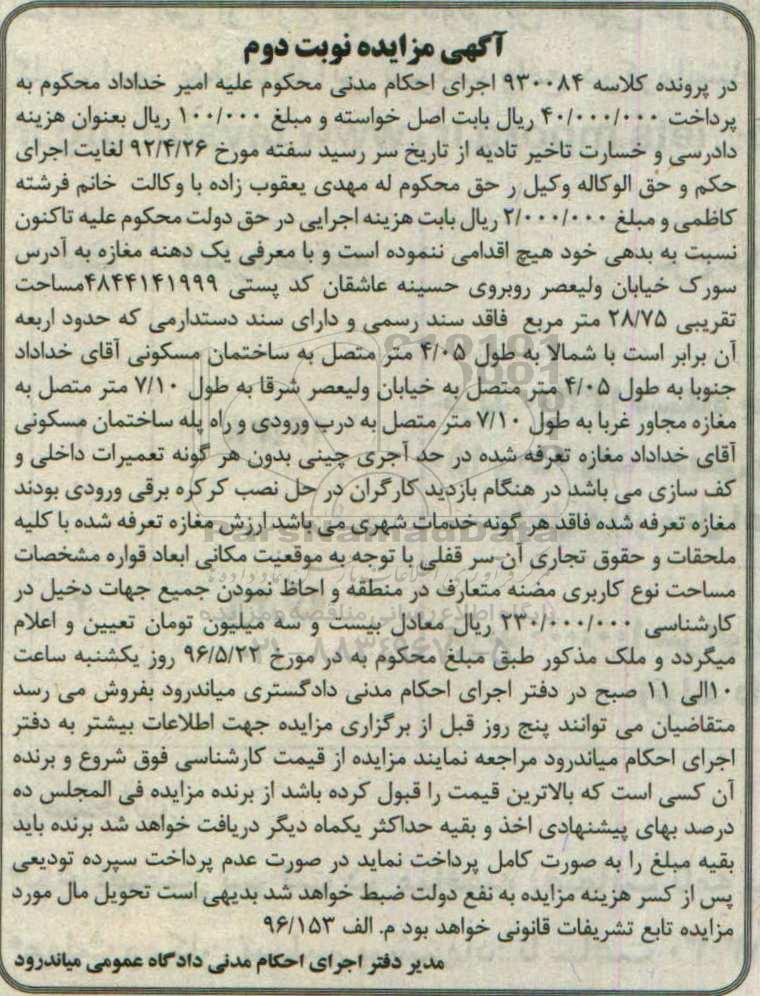 آگهی مزایده نوبت دوم
در پرونده کلاسه ۹۳۰۰۸۴ اجرای احکام مدنی محکوم علیه امیر خداداد محکوم به
پرداخت ۴۰/۰۰۰/۰۰۰ ریال بابت اصل خواسته و مبلغ ۱۰۰/۰۰۰ ریال بعنوان هزینه
دادرسی و خسارت تاخیر تادیه از تاریخ سر رسید سفته مورخ ۹۲/۴/۲۶ لغایت اجرای
حکم و حق الوکاله وکیل ر حق محکوم له مهدی یعقوب زاده با وکالت خانم فرشته
کاظمی و مبلغ ۲/۰۰۰/۰۰۰ ریال بابت هزینه اجرایی در حق دولت محکوم علیه تاکنون
نسبت به بدهی خود هیچ اقدامی ننموده است و با معرفی یک دهنه مغازه به آدرس
سورک خیابان ولیعصر روبروی حسینه عاشقان کد پستی ۴۸۴۴۱۴۱۹۹۹مساحت
تقریبی ۲۸/۷۵ متر مربع فاقد سند رسمی و دارای سند دستدارمی که حدود اربعه
آن برابر است با شمالا به طول ۴/۰۵ متر متصل به ساختمان مسکونی آقای خداداد
جنوبا به طول ۴/۰۵ متر متصل به خیابان ولیعصر شرقا به طول ۷/۱۰ متر متصل به
مغازه مجاور غربا به طول ۷/۱۰ متر متصل به درب ورودی و راه پله ساختمان مسکونی
آقای خداداد مغازه تعرفه شده در حد آجری چینی بدون هر گونه تعمیرات داخلی و
کف سازی می باشد در هنگام بازدید کارگران در حل نصب کرکره برقی ورودی بودند
مغازه تعرفه شده فاقد هر گونه خدمات شهری می باشد ارزش مغازه تعرفه شده با کلیه
ملحقات و حقوق تجاری آن سر قفلی با توجه به موقعیت مکانی ابعاد قواره مشخصات
مساحت نوع کاربری مضنه متعارف در منطقه و احاظ نمودن جمیع جهات دخیل در
کارشناسی ۲۳۰/۰۰۰/۰۰۰ ریال معادل بیست و سه میلیون تومان تعیین و اعلام
میگردد و ملک مذکور طبق مبلغ محکوم به در مورخ ۹۶/۵/۲۲ روز یکشنبه ساعت
۱۰الی ۱۱ صبح در دفتر اجرای احکام مدنی دادگستری میاندرود بفروش می رسد
متقاضیان می توانند پنج روز قبل از برگزاری مزایده جهت اطلاعات بیشتر به دفتر
اجرای احکام میاندرود مراجعه نمایند مزایده از قیمت کارشناسی فوق شروع و برنده
آن کسی است که بالاترین قیمت را قبول کرده باشد از برنده مزایده فی المجلس ده
درصد بهای پیشنهادی اخذ و بقیه حداکثر یکماه دیگر دریافت خواهد شد برنده باید
بقیه مبلغ را به صورت کامل پرداخت نماید در صورت عدم پرداخت سپرده تودیعی
پس از کسر هزینه مزایده به نفع دولت ضبط خواهد شد بدیهی است تحویل مال مورد
مزایده تابع تشریفات قانونی خواهد بود م. الف ۹۶/۱۵۳
مدیر دفتر اجرای احکام مدنی دادگاه عمومی میاندرود
ParsNamadData